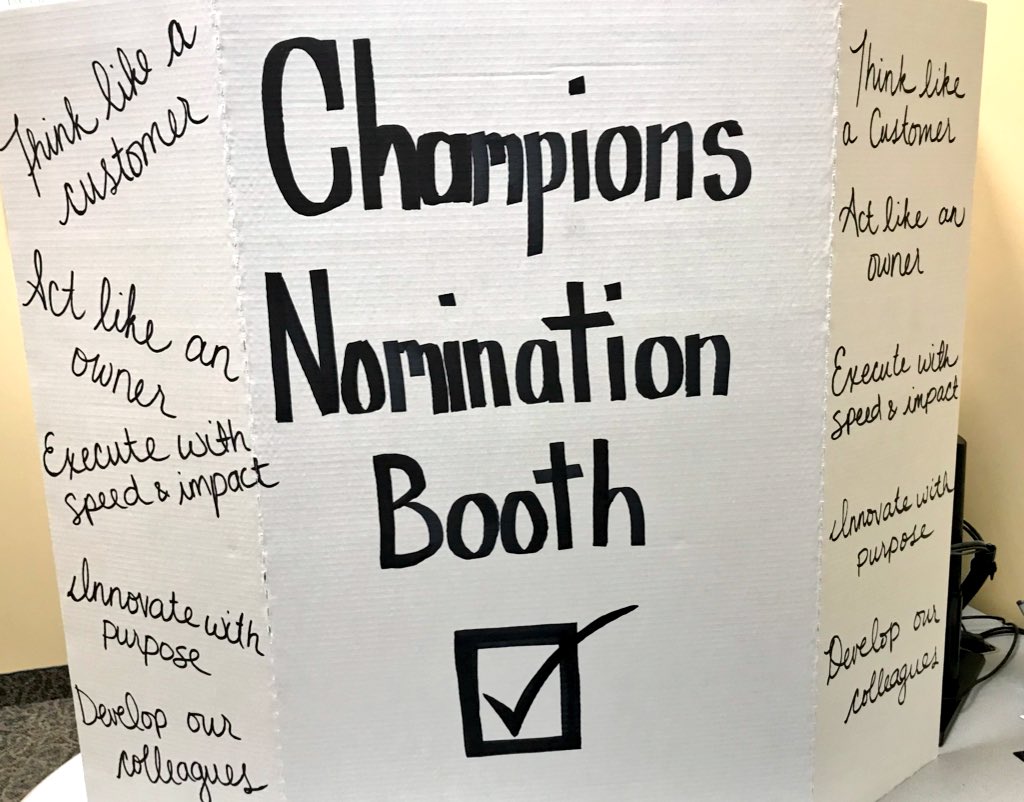 Think like a
customer
Act like an
owner
Execute with
speed & impact
Innovate with
purpose
Develop our
colleagues
Champions
Nomination
Booth
Think like
a Customer
Act like an
owner
Execute with
speed & impact
Innovate with
purpose
Develop our
colleagues